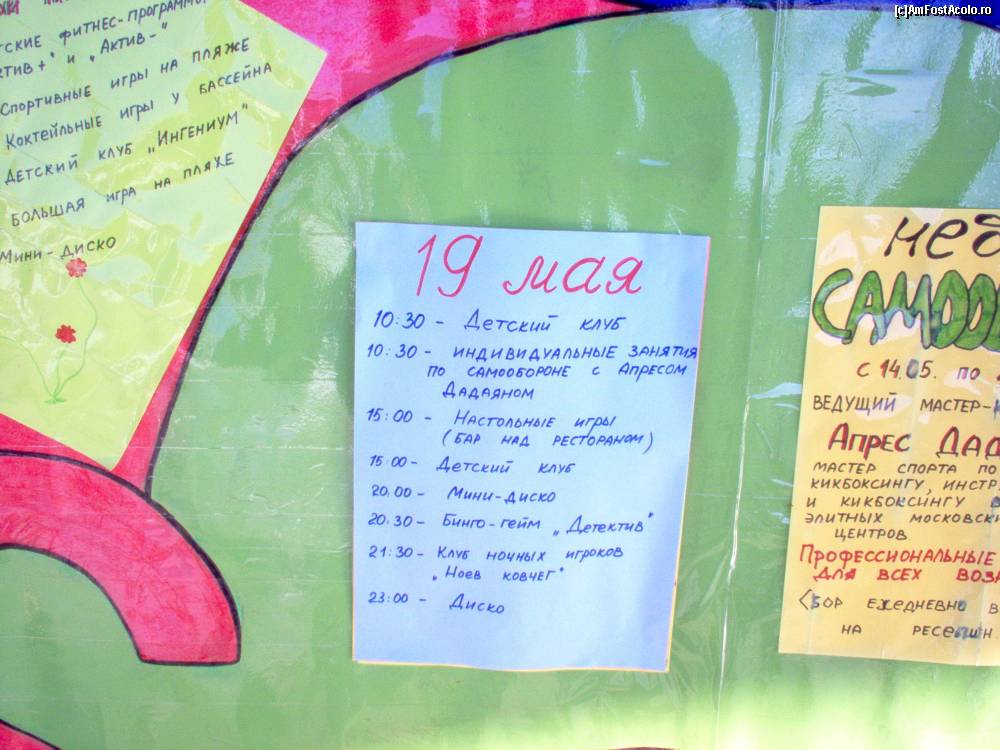 [c]AmFostAcolo.ru
фитнес-программы
" и „Актив-"
Спортивные игры на пляже
Коктейльные игры у бассейна
Детский клуб „Ингениум"
Большая игра на пляже
Мини-диско
19 мая
10:30 - Детский клуб
10:30 - индивидуальные занятия
по самообороне с Апресом
Дадаяном
15:00 - Настольные игры
(бар над рестораном)
15:00 - Детский клуб
20.00 - Мини-диско
20.30 - Бинго-гейм „Детектив"
21:30 - Клуб ночных игроков
„Ноев ковчег"
23:00 - Диско
с 14.05. по
Ведущий мастер-
Апрес
мастер спорта по
кикбоксингу,
и кикбоксингу в
элитных
центров.
Профессиональные
для всех
Сбор ежедневно в
на